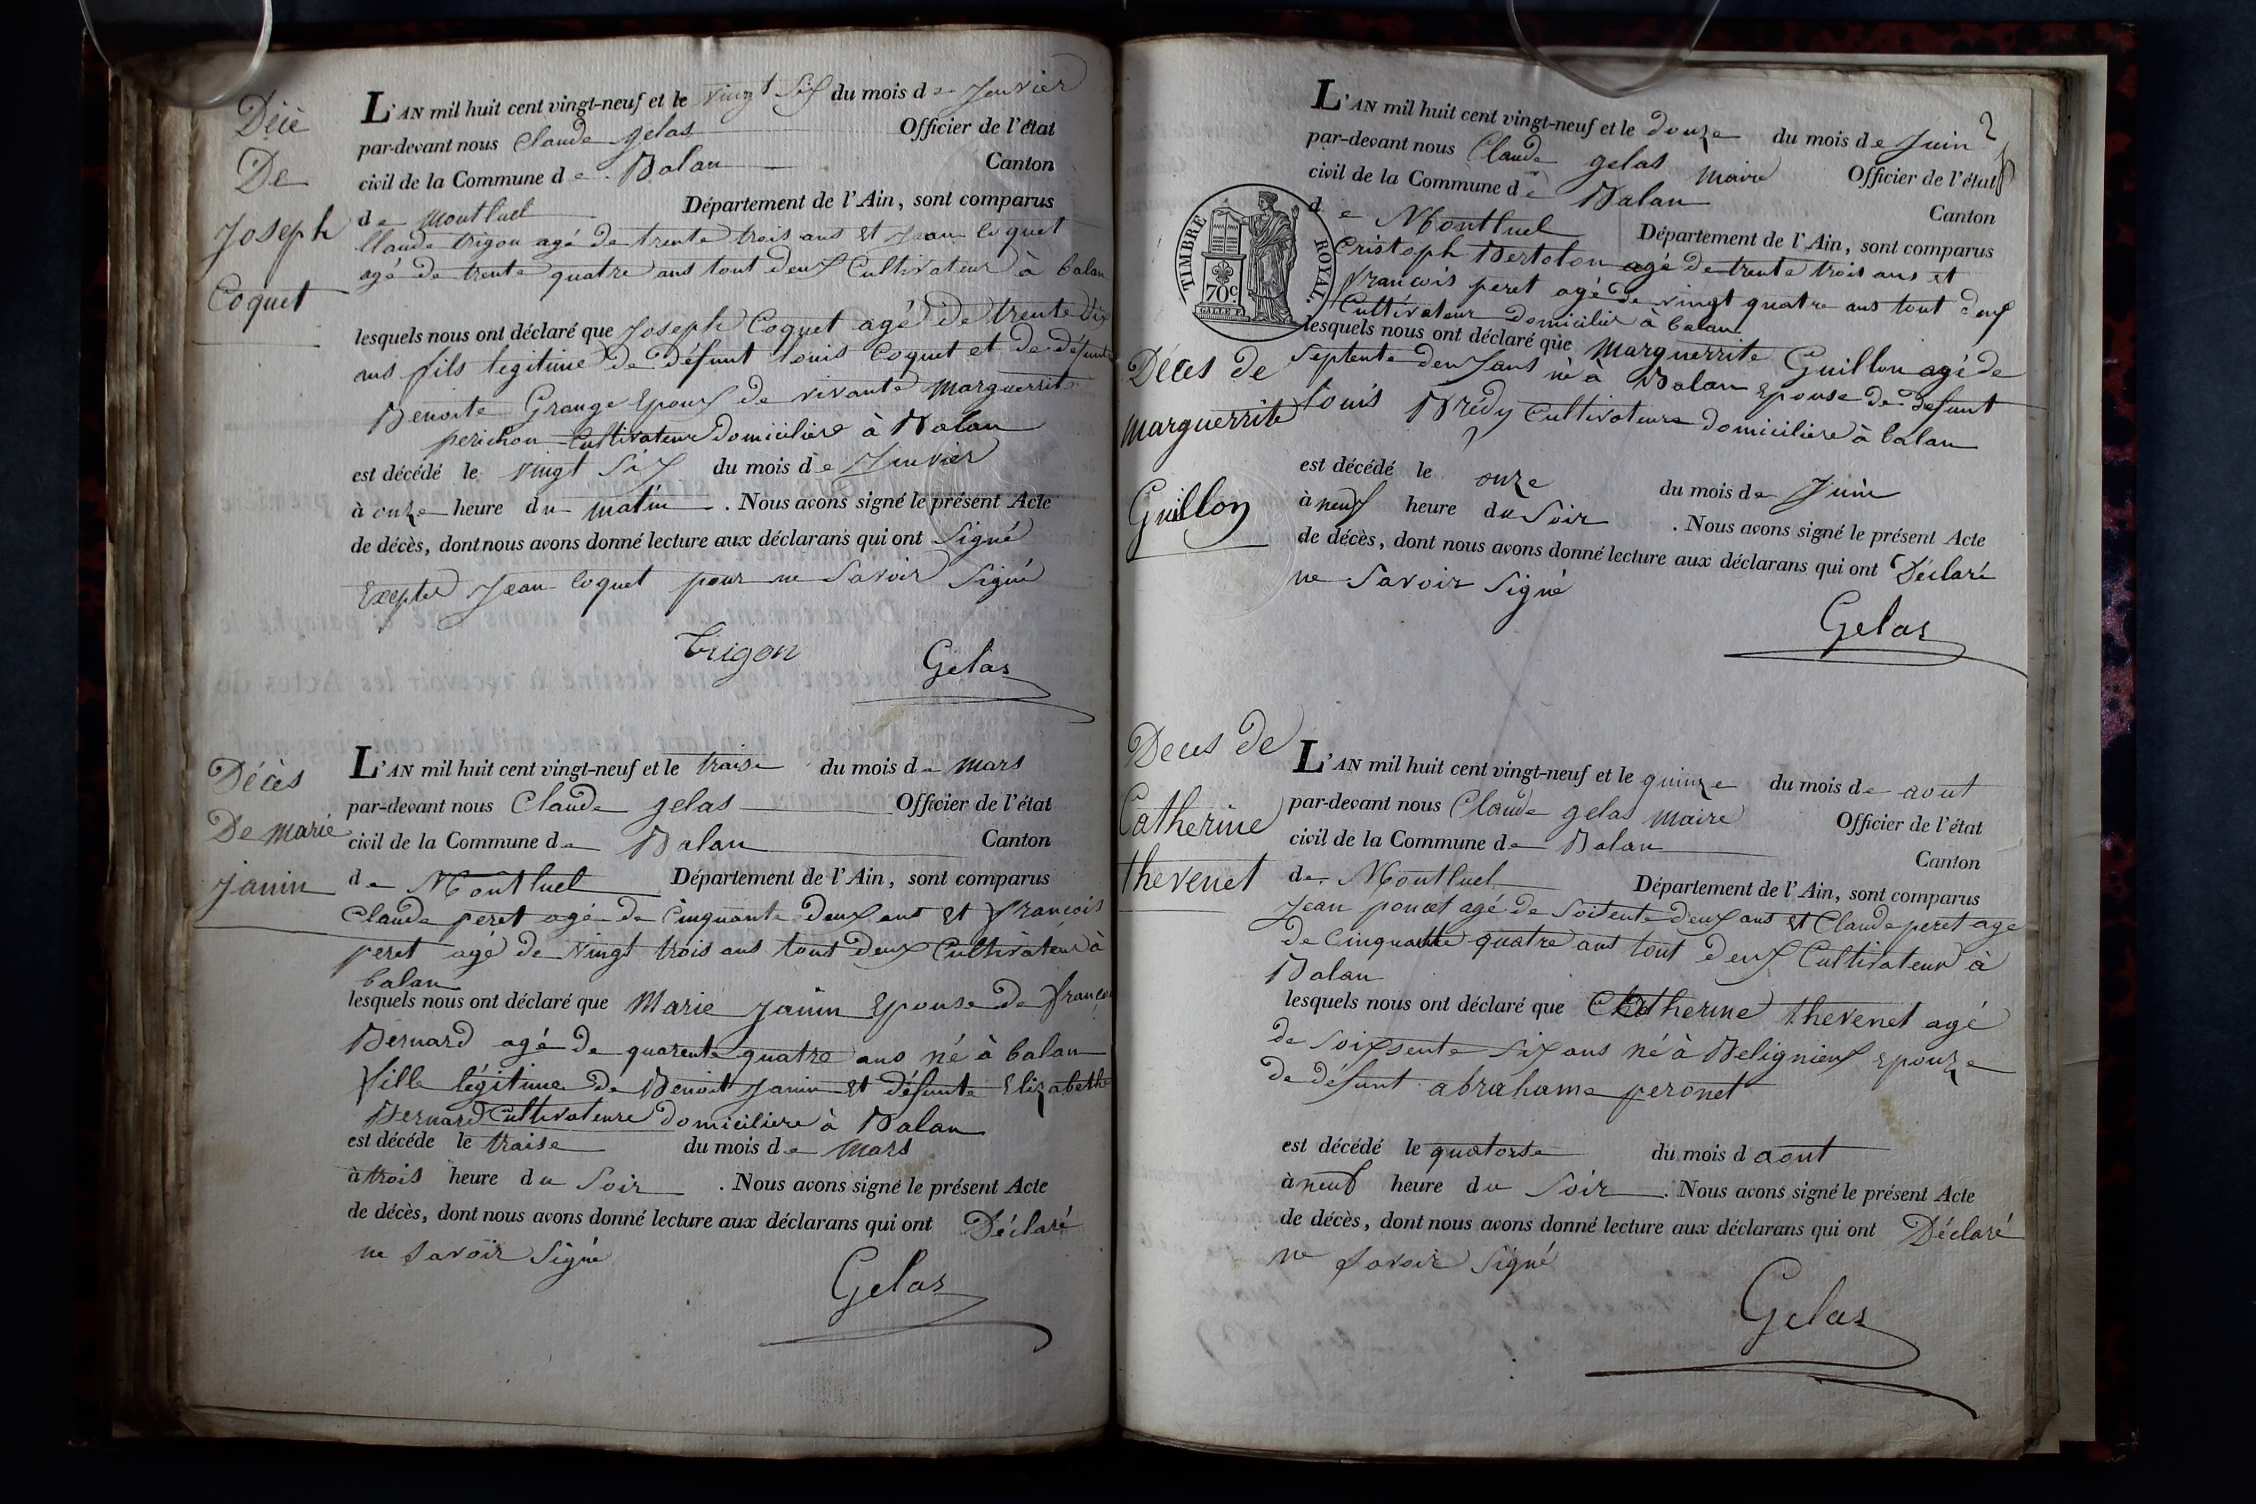 Décè
De
Joseph
Coquet
L'AN mil huit cent vingt-neuf et le vingt Six du mois de Janvier
par-devant nous Claude gelas Officier de l'état
civil de la Commune de Balan Canton
de montluel Département de l'Ain, sont comparus
Claude trigon agé de trente trois ans et Jean Coquet
agé de trente quatre ans tout deux Cultivateur à balan
lesquels nous ont déclaré que Joseph Coquet agé de trente Six
ans fils legitime de défunt louis Coquet et de défunte
Benoite Grange Epoux de vivante marguerrite
perichon Cultivateur Domicilier à Balan
est décédé le vingt Six du mois de Janvier
à onze heure du matin . Nous avons signé le présent Acte
de décès, dont nous avons donné lecture aux déclarans qui ont Signé
Excepter Jean Coquet pour ne Savoir Signé
trigon Gelas
Décès
De marie
janin
L'AN mil huit cent vingt-neuf et le traise du mois de mars
par-devant nous Claude gelas Officier de l'état
civil de la Commune de Balan Canton
de Montluel Département de l'Ain, sont comparus
Claude peret agé de Cinquante deux ans et françois
peret agé de vingt trois ans tout deux Cultivateur à
balan
lesquels nous ont déclaré que Marie janin Epouse de françois
Bernard agé de quarente quatre ans né à balan
fille légitime de Benoit janin et défunte Elizabethe
Bernard Cultivateure Domiciliere à Balan
est décéde le traise du mois de mars
à trois heure du Soir . Nous avons signé le présent Acte
de décès, dont nous avons donné lecture aux déclarans qui ont Déclaré
ne Savoir Signé
Gelas
2
L'AN mil huit cent vingt-neuf et le douze du mois de Juin
par-devant nous Claude gelas maire Officier de l'état
civil de la Commune de Balan Canton
de Montluel Département de l'Ain, sont comparus
Cristoph Bertolon agé de trente trois ans et
françois peret agé de vingt quatre ans tout deux
Cultivateur Domicilier à balan
lesquels nous ont déclaré que Marguerrite Guillon agé de
Septente deux ans né à Balan Epouse de defunt
louis Brédy Cultivateure domiciliere à balan
est décédé le onze du mois de Juin
à neuf heure du Soir . Nous avons signé le présent Acte
de décès, dont nous avons donné lecture aux déclarans qui ont Déclaré
ne Savoir Signé
Gelas
TIMBRE ROYAL.
70c
Décès de
marguerrite
Guillon
Deces de
Catherine
thevenet
L'AN mil huit cent vingt-neuf et le quinze du mois de aout
par-devant nous Claude gelas maire Officier de l'état
civil de la Commune de Balan Canton
de Montluel Département de l'Ain, sont comparus
Jean poncet agé de Soitente deux ans et Claude peret age
de Cinquante quatre ans tout deux Cultivateur à
Balan
lesquels nous ont déclaré que Catherine thevenet agé
de Soixsente Six ans né à Belignieux Epouze
de défunt abrahame peronet
est décédé le quatorse du mois d aout
à neuf heure du Soir . Nous avons signé le présent Acte
de décès, dont nous avons donné lecture aux déclarans qui ont Déclaré
ne Savoir Signé
Gelas